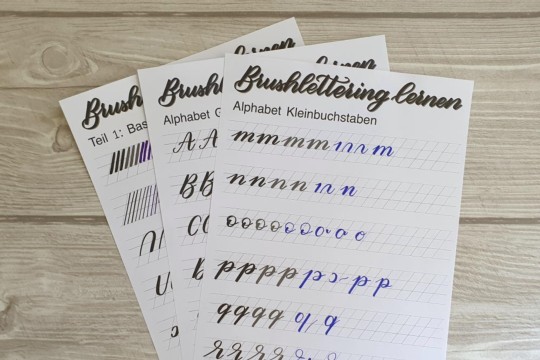 Brush
Teil 1: Bas
Brush
Alphabet G
A A
B B
Brushlettering lernen
Alphabet Kleinbuchstaben
m m m m m
n n n n n
o o o o o o o a o
p p p p p p p
q q q q q